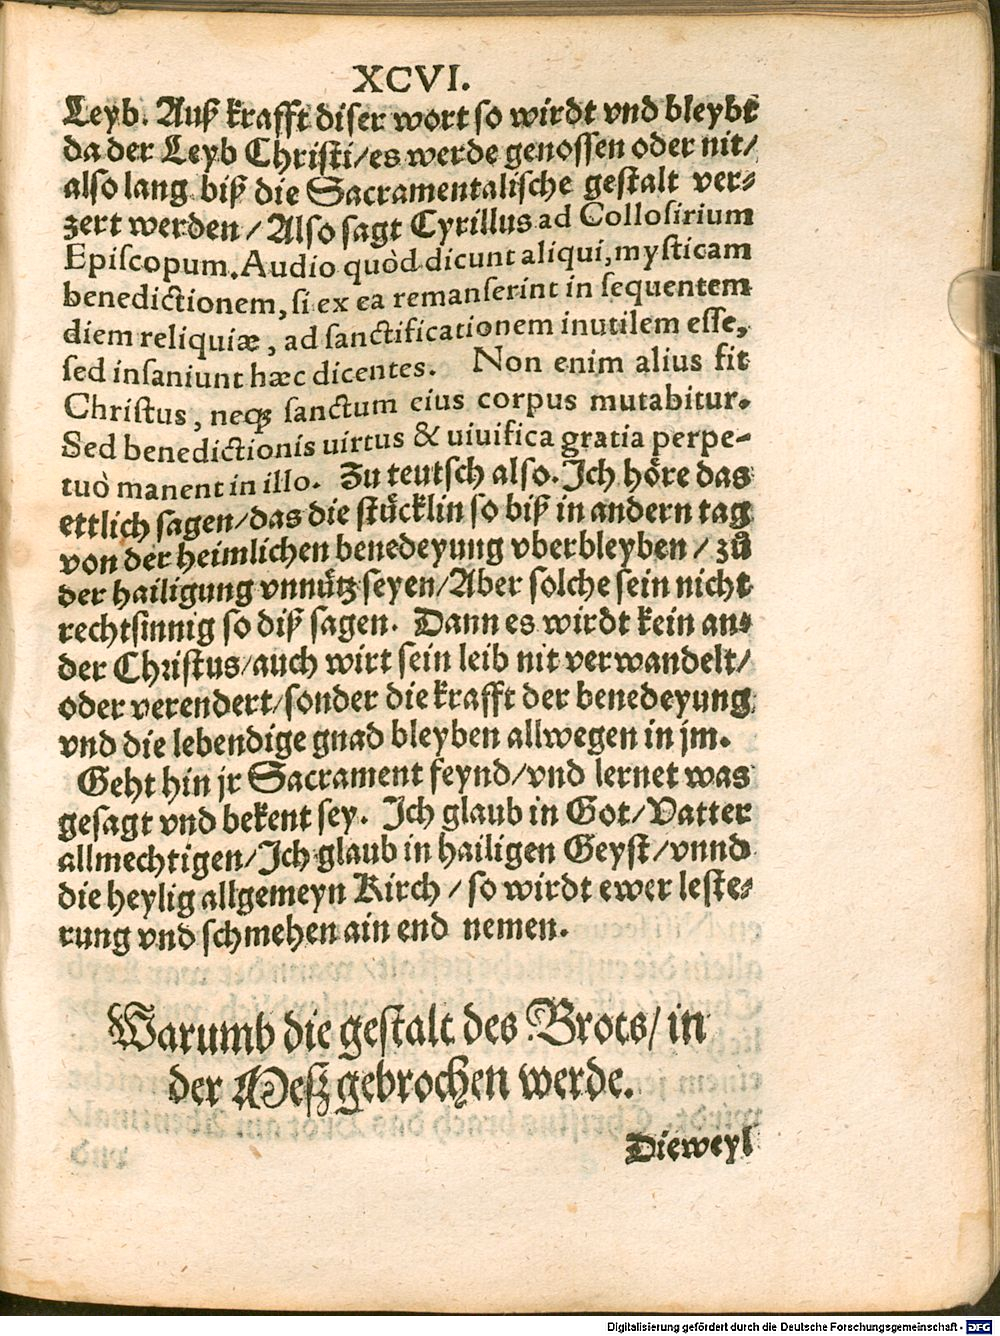 XCVI.
Leyb. Auß krafft diser wort so wirdt vnd bleybt
da der Leyb Christi/es werde genossen oder nit/
also lang biß die Sacramentalische gestalt ver⸗
zert werden/ Also sagt Cyrillus ad Collosirium
Episcopum. Audio quòd dicunt aliqui, mysticam
benedictionem, si ex ea remanserint in sequentem
diem reliquiæ, ad sanctificationem inutilem esse,
sed insaniunt hæc dicentes. Non enim alius fit
Christus, neqꝫ sanctum eius corpus mutabitur.
Sed benedictionis uirtus & uiuifica gratia perpe-
tuò manent in illo. Zu teutsch also. Ich hoͤre das
ettlich sagen/das die stuͤcklin so biß in andern tag
von der heimlichen benedeyung vberbleyben/ zů
der hailigung vnnuͤtz seyen/Aber solche sein nicht
rechtsinnig so diß sagen. Dann es wirdt kein an⸗
der Christus/auch wirt sein leib nit verwandelt/
oder verendert/sonder die krafft der benedeyung
vnd die lebendige gnad bleyben allwegen in jm.
Geht hin jr Sacrament feynd/vnd lernet was
gesagt vnd bekent sey. Ich glaub in Got/Vatter
allmechtigen/Ich glaub in hailigen Geyst/vnnd
die heylig allgemeyn Kirch/ so wirdt ewer leste⸗
rung vnd schmehen ain end nemen.
Warumb die gestalt des Brots/ in
der Meß gebrochen werde.
Dieweyl
Digitalisierung gefördert durch die Deutsche Forschungsgemeinschaft - DFG